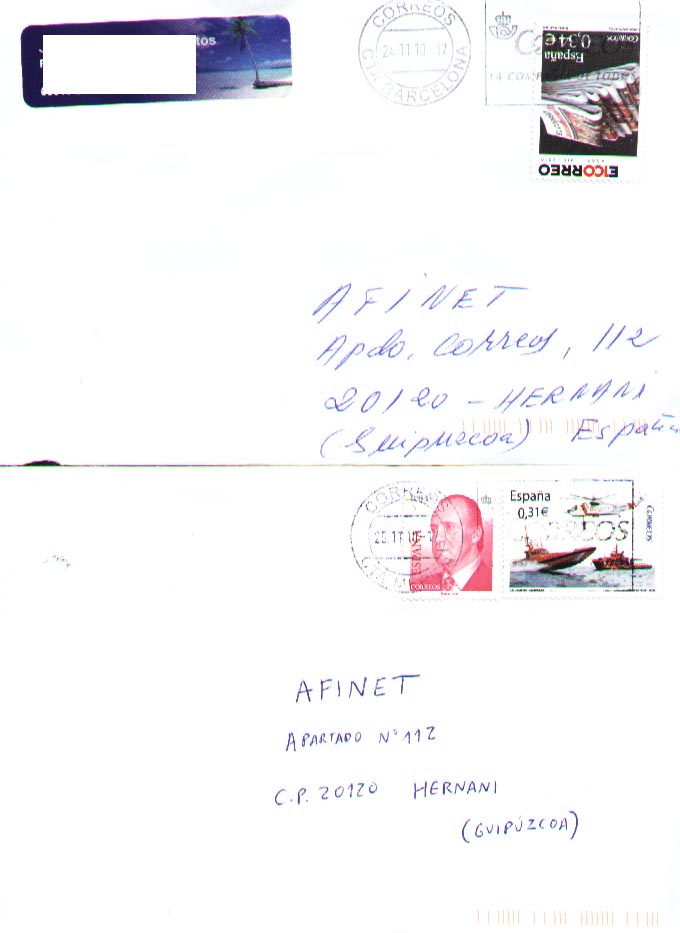 tos
CORREOS
24 11 10 - 17
CTA BARCELONA
CORREOS
España
0,34€
Correos
EL CORREO
AFINET
Apdo. Correos, 112
20120 - HERNANI
(Guipuzcoa) España
CORREOS
ESPAÑA
CORREOS
España
0,31€
CORREOS
CORREOS
AFINET
APARTADO Nº 112
C.P. 20120 HERNANI
(GUIPÚZCOA)